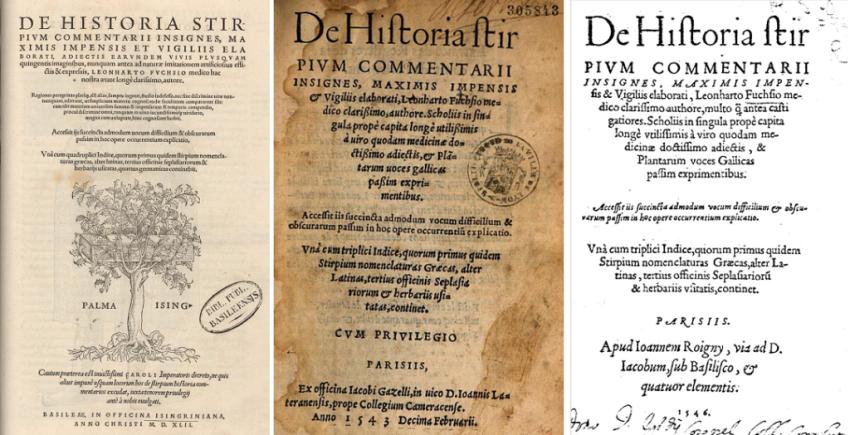 DE HISTORIA STIR
PIVM COMMENTARII INSIGNES, MA
XIMIS IMPENSIS ET VIGILIIS ELA
BORATI, ADIECTIS EARVNDEM VIVIS PLVSQVAM
quingentis imaginibus, nunquam antea ad naturæ imitationem artificiosius effi-
ctis & expressis, LEONHARTO FVCHSIO medico hac
nostra ætate longè clarissimo, autore.
Accessit iis succincta admodum uocum difficilium & obscurarum
passim in hoc opere occurrentium explicatio.
Vnà cum quadruplici Indice, quorum primus quidem stirpium nomencla-
turas græcas, alter latinas, tertius officinis seplasiariorum &
herbarijs usitatas, quartus germanicas continebit.
PALMA ISING.
BIBL. PUBL.
BASILEENSIS
Cautum præterea est inuictissimi CAROLI Imperatoris decreto, ne quis
alius impunè usquam locorum hos de stirpium historia com-
mentarios excudat, iuxta tenorem priuilegij
antè à nobis euulgati.
BASILEAE, IN OFFICINA ISINGRINIANA,
ANNO CHRISTI M. D. XLII.
305843
De Historia stir
PIVM COMMENTARII
INSIGNES, MAXIMIS IMPENSIS
& vigiliis elaborati, Leonharto Fuchsio me-
dico clarißimo, authore. Scholiis in sin-
gula propè capita longè utilißimis
à uiro quodam medicinæ do-
ctißimo adiectis, & Plā-
tarum uoces gallicas
paßim expri-
mentibus.
Accesserit iis succincta admodum vocum difficilium &
obscurarum passim in hoc opere occurrentiū explicatio.
Vnà cum triplici Indice, quorum primus quidem
Stirpium nomenclaturas Græcas, alter
Latinas, tertius officinis Seplasia
riorum & herbariis usi-
tatas, continet.
CVM PRIVILEGIO
PARISIIS,
Ex officina Iacobi Gazelli, in uico D. Ioannis La-
teranensis, prope Collegium Cameracense.
Anno 1543 Decima Februarii.
De Historia stir
PIVM COMMENTARII
INSIGNES, MAXIMIS IMPEN-
sis & Vigiliis elaborati, Leonharto Fuchsio me-
dico clarissimo authore, multo q̃ antea casti
gatiores. Scholiis in singula propè capita
longè vtilissimis à viro quodam me-
dicinæ doctissimo adiectis, &
Plantarum voces Gallicas
passim exprimentibus.
Accessit iis succincta admodum vocum difficilium & obscu-
rarum passim in hoc opere occurrentium explicatio.
Vnà cum triplici Indice, quorum primus quidem
Stirpium nomenclaturas Græcas, alter La-
tinas, tertius officinis Seplasiariorū
& herbariis vsitatis, continet.
PARISIIS.
Apud Ioannem Roigny, via ad D.
Iacobum, sub Basilisco, &
quatuor elementis.
1546.